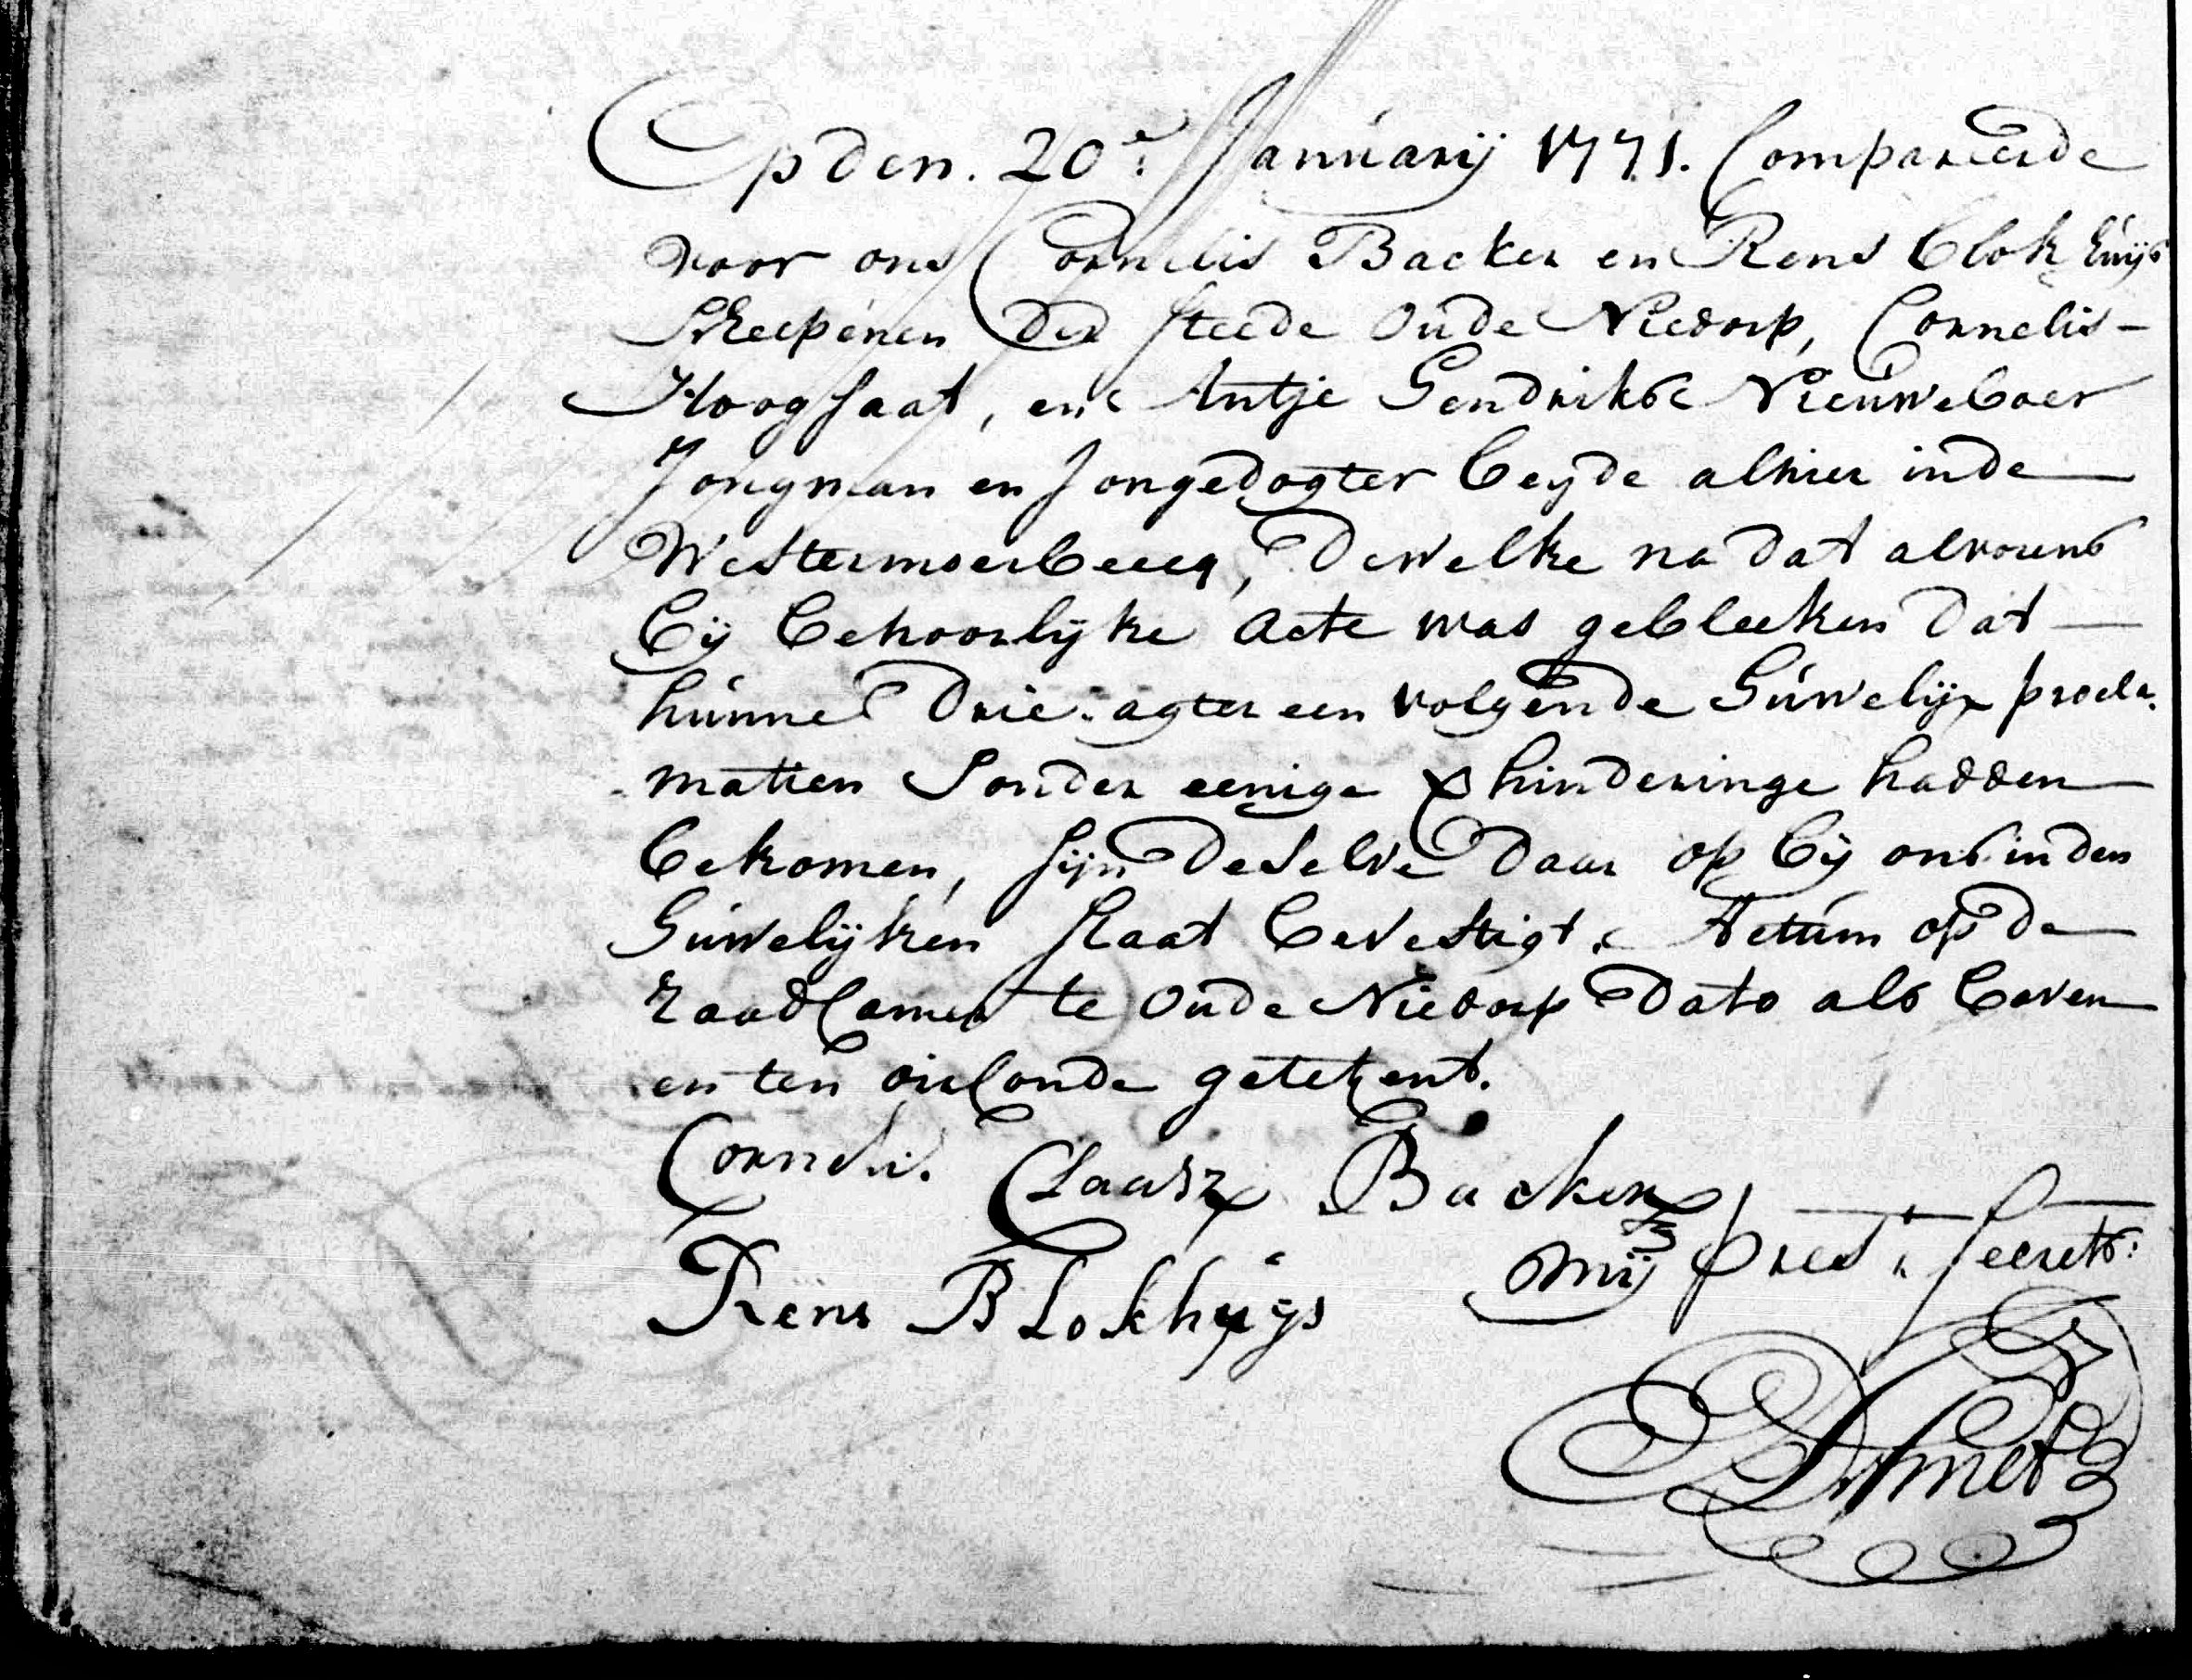 Op den. 20e: Januarij 1771. Compareerde
voor ons Cornelis Backer en Rens Blokhuijs
Scheepenen der steede Oude Niedorp, Cornelis -
Hoogsaat, en Antje Hendrikse Nieuweboer
Jongman en Jongedogter beyde alhier inde
Westermoerbeecq, dewelke na dat alvorens
bij behoorlyke acte was gebleeken dat
hunne drie agter een volgende Huwelijx procla-
matien sonder eenige hinderinge hadden
bekomen, sijn deselve daar op bij ons in den
Huwelijken staat bevestigt. Actum op de
raadcamer te Oude Niedorp dato als boven
en ten oirconde getekent.
Cornelis Claasz Backer
Rens Blokhuijs
mij pres.t secrets:
Smet